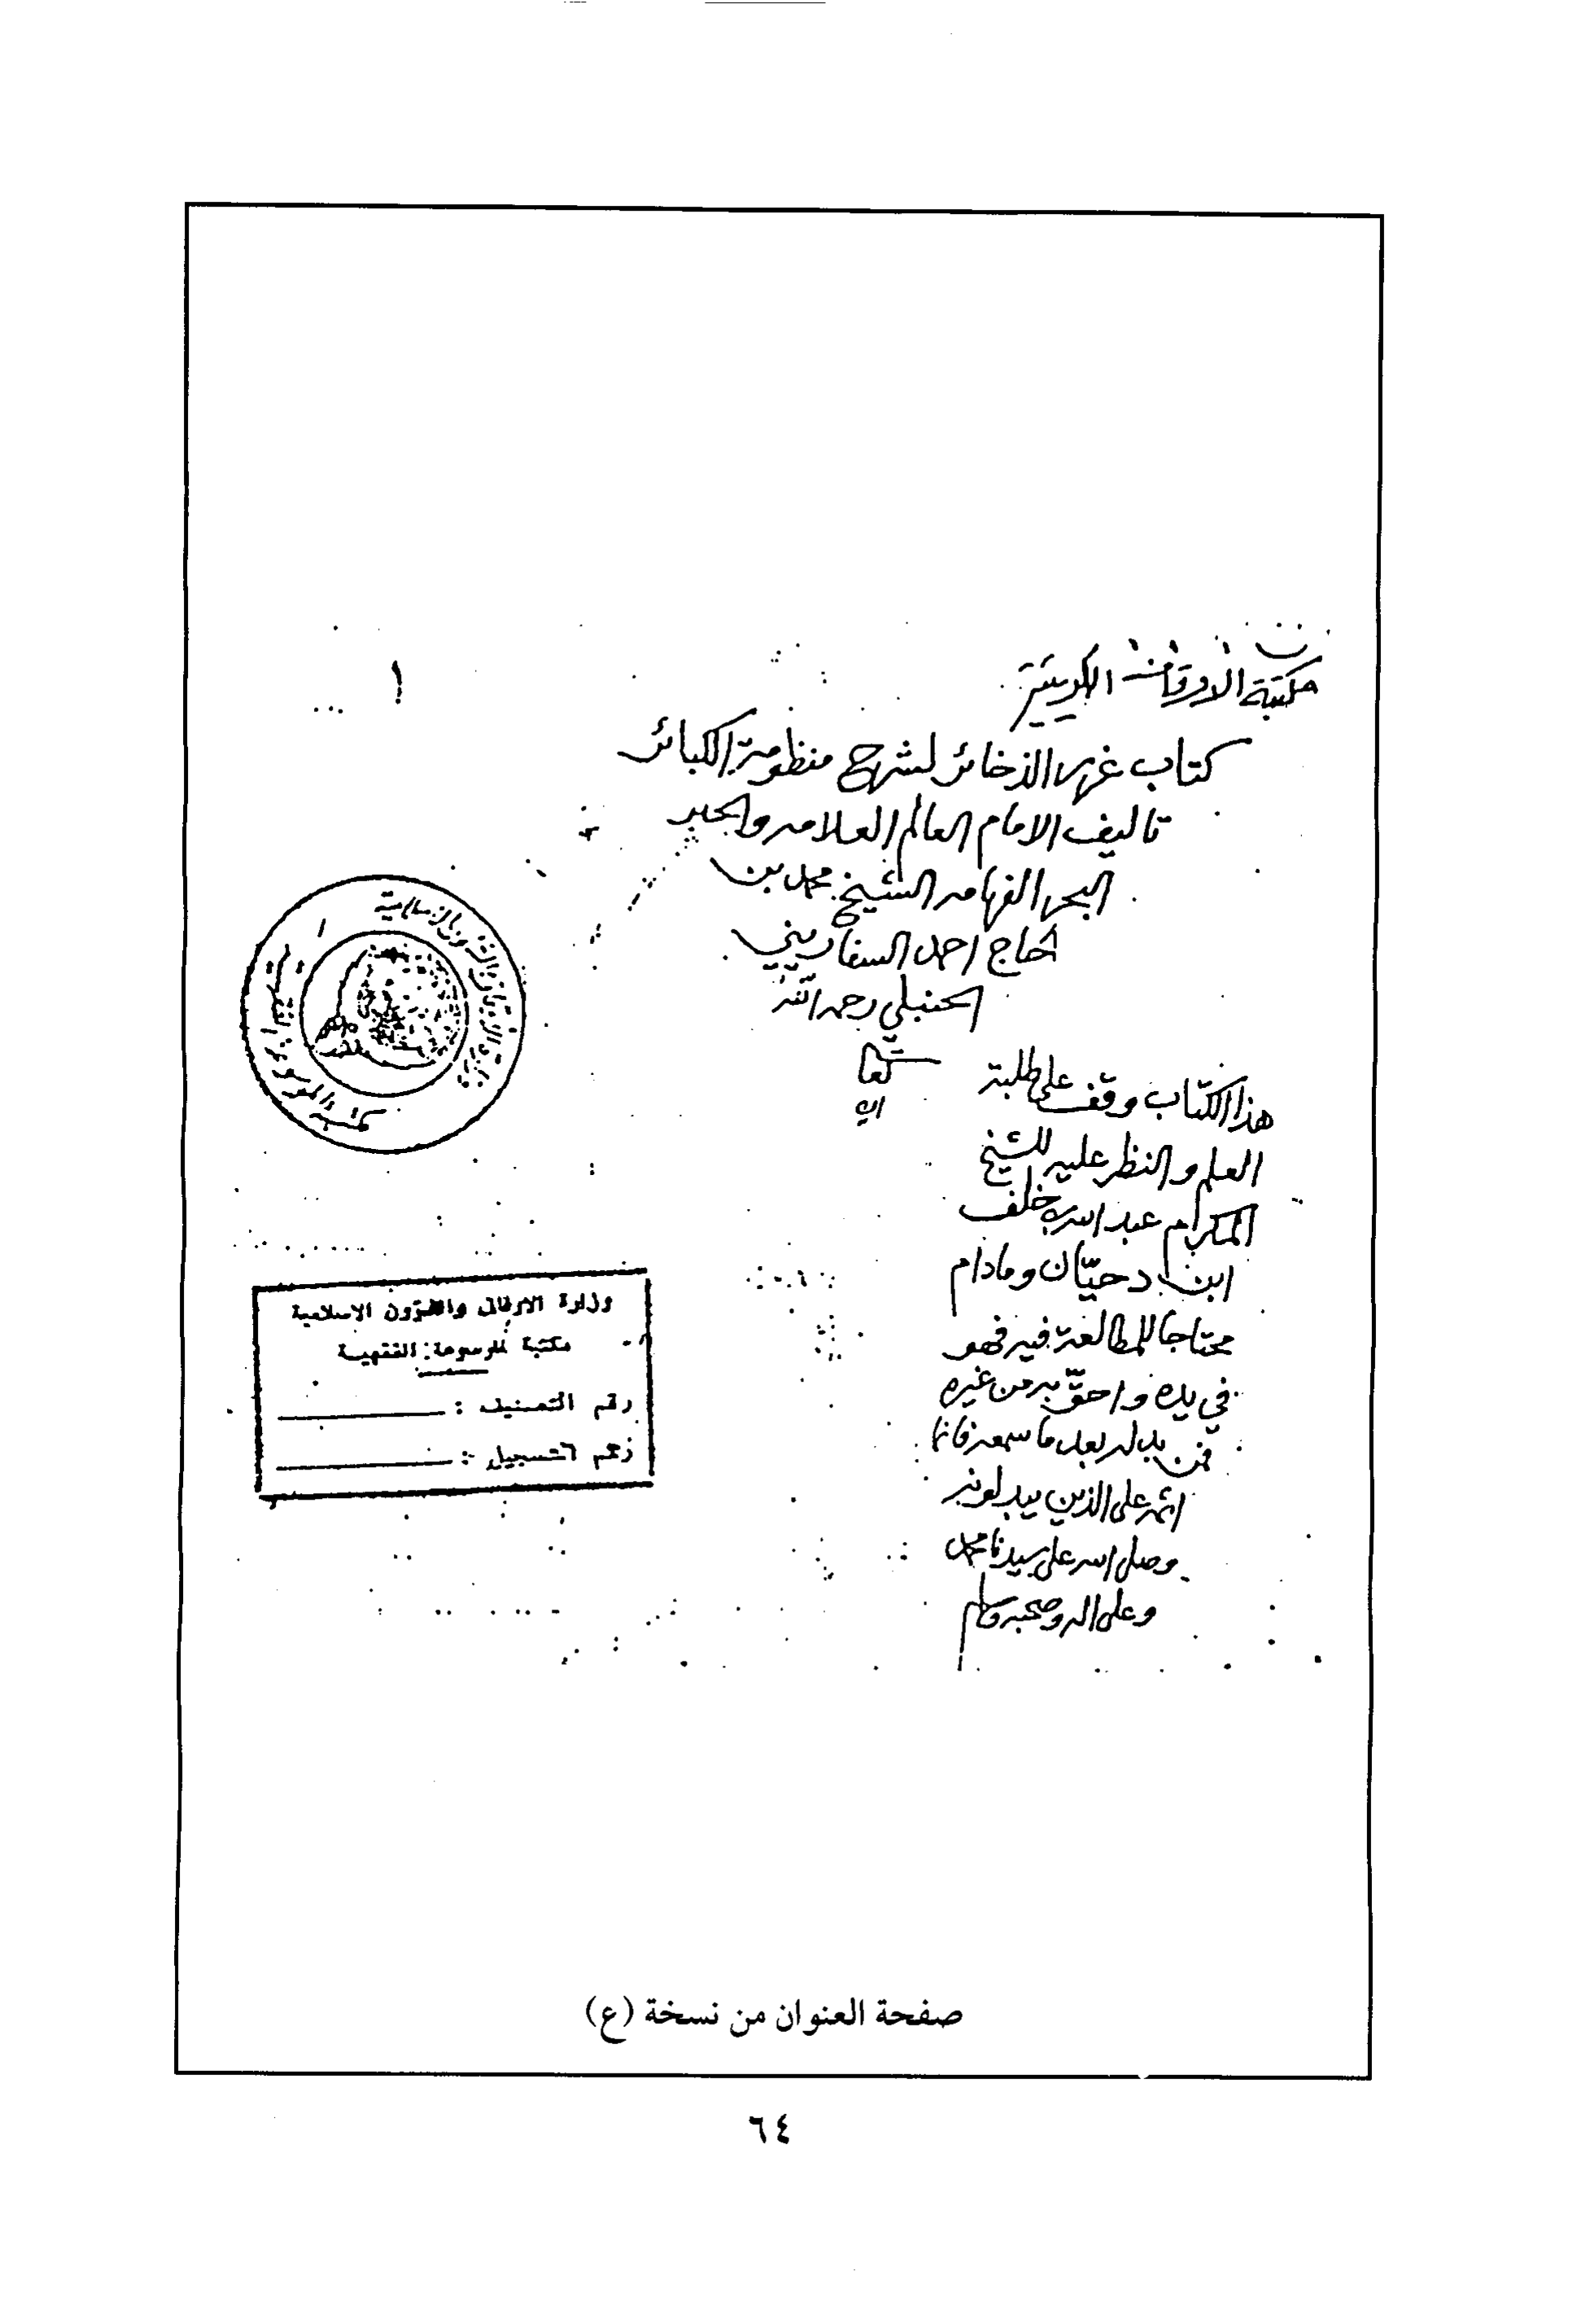 مكتبة الاوقاف الكويتية
١
كتاب غرر الذخائر لشرح منظومة الكبائر
تاليف الامام العالم العلامه والحبر
البحر الفهامه الشيخ محمد بن
الحاج احمد السفاريني
الحنبلي رحمه الله
تعا
هذا الكتاب وقف على طلبة
العلم والنظر عليه للشيخ
المكرم عبد الله خلف
ابن دحيّان ومادام
محتاجا للمطالعة فيه فهو
في يده واحقّ به من غيره
فمن بدله بعد ما سمعه فانما
اثمه على الذين يبدلونه
وصلى الله على سيدنا محمد
وعلى اله وصحبه وسلم
وزارة الاوقاف والشؤون الاسلامية
مكتبة الموسوعة الفقهية
وزارة الاوقاف والشؤون الاسلامية
مكتبة الموسوعة الفقهية
رقم التصنيف :
رقم التسجيل :
صفحة العنوان من نسخة (ع)
٦٤